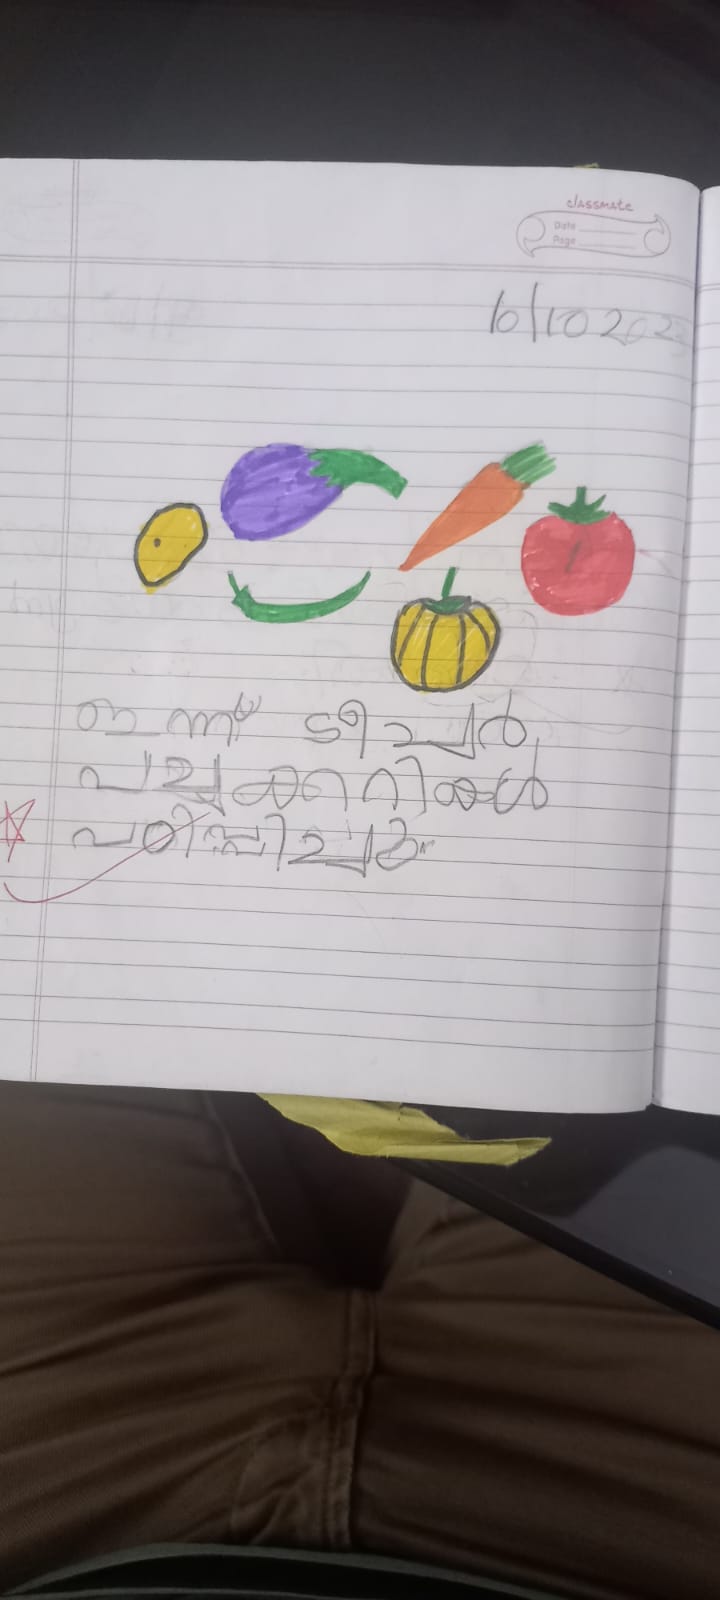 classmate
Date
Page
6/10 2023
ഇന്ന് ടീച്ചർ
പച്ചക്കറികൾ
പഠിപ്പിച്ചു